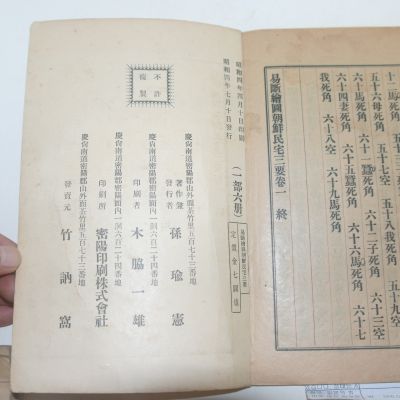 十 馬死角 五十八我死角 五十九空
五十六母死角 五十七空
六十馬死角 六十一 蠶死角 六十二子死角 六十三空
六十四妻死角 六十五蠶死角 六十六馬死角 六十七
我死角 六十八空
易斷繪圖朝鮮民宅三要卷一 終
易斷繪圖朝鮮民宅三要
定價金七圓
(一部六册)
昭和四年四月十日印刷
昭和四年七月十日發行
不許複製
慶尙南道密陽郡山外面茶竹里五百七十三番地
著作兼發行者 孫瑜憲
慶尙南道密陽郡密陽面內一洞六百二十四番地
印刷者 木脇一雄
慶尙南道密陽郡密陽面內一洞六百二十四番地
印刷所 密陽印刷株式會社
慶尙南道密陽郡山外面茶竹里五百七十三番地
發賣元 竹訥窩